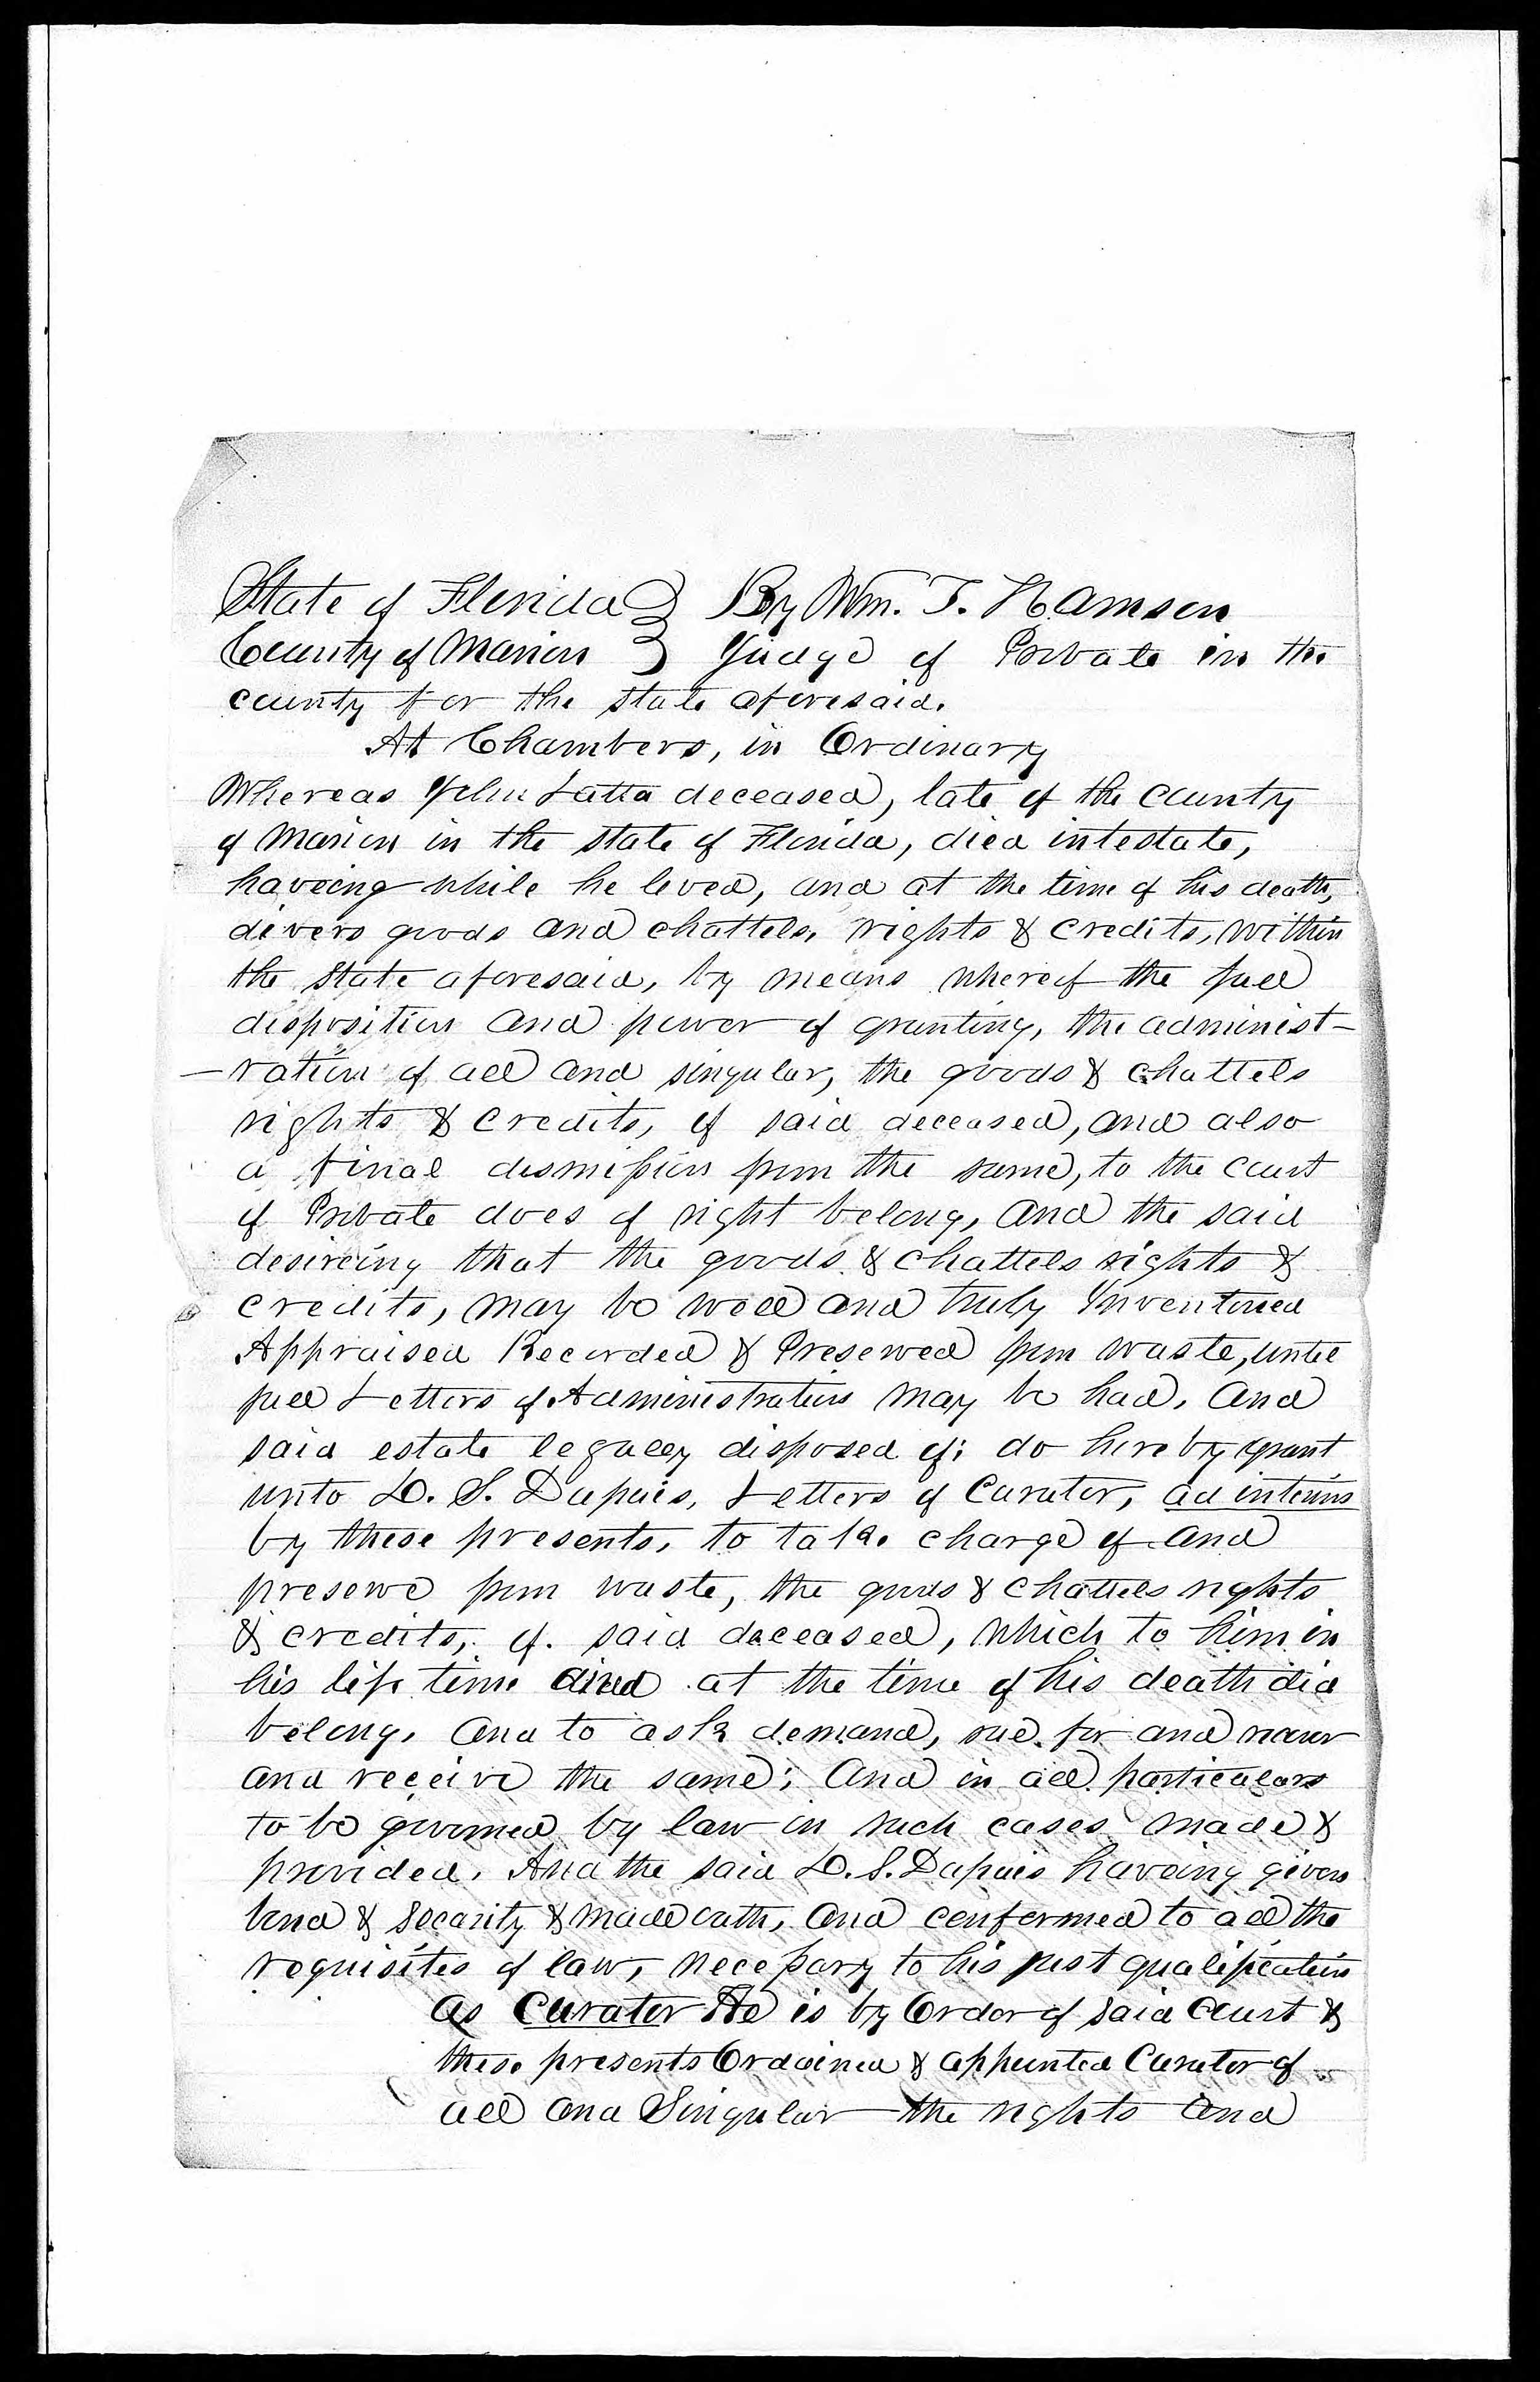 State of Florida } By Wm. T. Harrison
County of Marion } Judge of Probate in the
county for the state aforesaid.
At Chambers, in Ordinary
Whereas John Latta deceased, late of the county
of Marion in the state of Florida, died intestate,
haveing while he lived, and at the time of his death,
divers goods and chattels, rights & credits, within
the State aforesaid, by means whereof the full
disposition and power of granting, the administ-
-ration of all and singular, the goods & chattels
rights & credits, of said deceased, and also
a final dismission from the same, to the court
of Probate does of right belong, and the said
desireing that the goods & chattels rights &
credits, may be well and truly Inventoried
Appraised Recorded & Preserved from waste, until
full Letters of Administration may be had, and
said estate legally disposed of; do hereby grant
unto D. S. Dupuis, Letters of Curator, ad interim
by these presents, to take charge of and
preserve from waste, the goods & chattels rights
& credits, of said deceased, which to him in
his life time and at the time of his death did
belong, and to ask demand, sue for and recover
and receive the same; and in all particulars
to be governed by law in such cases made &
provided. And the said D. S. Dupuis haveing given
bond & Security & made oath, and conformed to all the
requisites of law, necessary to his just qualification
as Curator He is by Order of said Court &
these presents Ordained & appointed Curator of
all and Singular the rights and